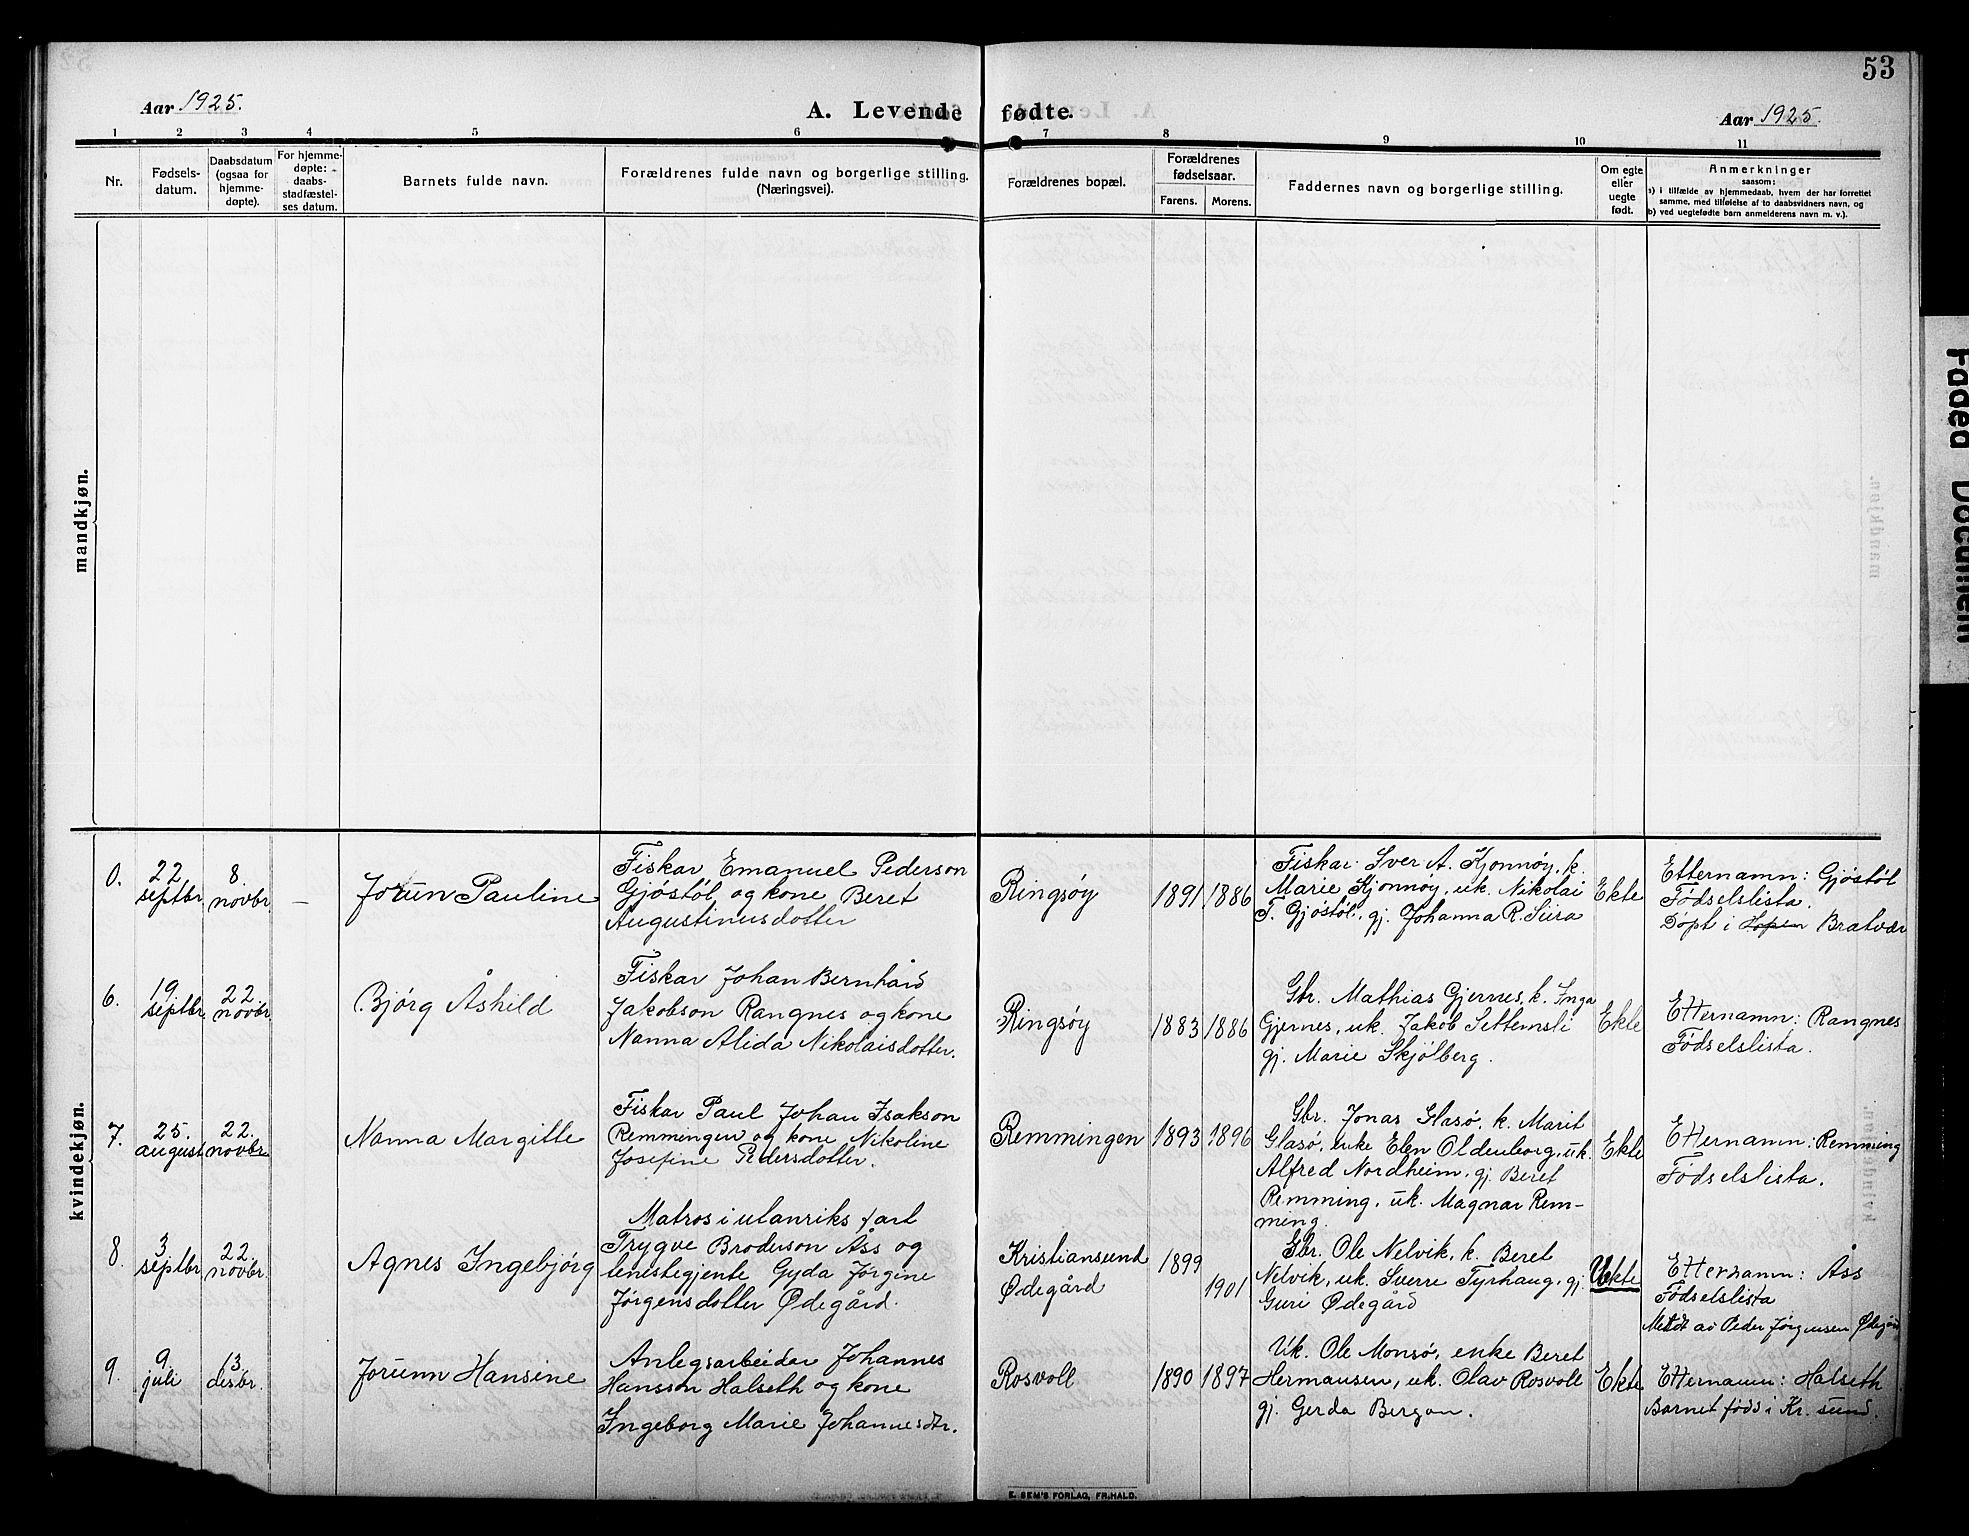 53
Aar 1925.
A. Levende fødte.
Aar 1925.
1 2 3 4 5 6 7 8 9 10 11
Nr.
Fødsels-
datum.
Daabsdatum
(ogsaa for
hjemme-
døpte).
For hjemme-
døpte:
daabs-
stadfæstel-
ses datum.
Barnets fulde navn.
Forældrenes fulde navn og borgerlige stilling.
(Næringsvei).
Forældrenes bopæl.
Forældrenes
fødselsaar.
Farens. Morens.
Faddernes navn og borgerlige stilling.
Om egte
eller
uegte
født.
Anmerkninger
saasom:
a) i tilfælde av hjemmedaab, hvem der har forrettet
samme, med tilføielse av to daabsvidners navn, og
b) ved uegtefødte barn anmelderens navn m. v.).
mandkjøn.
kvindekjøn.
0.
22
septbr
8.
novbr
–
Jorun Pauline
Fiskar Emanuel Pederson
Gjøstøl og kone Beret
Augustinusdotter
Ringsøy
1891
1886
Fiskar Iver A. Kjønnøy, k.
Marie Kjønnøy, uk. Nikolai
T. Gjøstøl, gj. Johanna R. Siira
Ekte
Etternamn: Gjøstøl
Fødselslista.
Døpt i Hopen Bratvær
6.
19
septbr
22
novbr
Bjørg Åshild
Fiskar Johan Bernhard
Jakobson Rangnes og kone
Nanna Alida Nikolaisdotter.
Ringsøy
1883
1886
Gbr. Mathias Gjernes, k. Inga
Gjernes, uk. Jakob Settemsli
gj. Marie Skjølberg.
Ekte
Etternamn: Rangnes
Fødselslista.
7.
25.
august
22.
novbr
Nanna Margitte
Fiskar Paul Johan Isakson
Remmingen og kone Nikoline
Josefine Pedersdotter.
Remmingen
1893
1896
Gbr. Jonas Glasø, k. Marit
Glasø, enke Elen Oldenborg, uk.
Alfred Nordheim, gj. Beret
Remming, uk. Magnar Rem-
ming.
Ekte
Etternamn: Remming
Fødselslista.
8.
3
septbr
22.
novbr.
Agnes Ingebjørg
Matros i utanriks fart
Trygve Broderson Åss og
tenestegjente Gyda Jørgine
Jørgensdotter Ødegård.
Kristiansund
Ødegård
1899
1901
Gbr. Ole Nelvik, k. Beret
Nelvik, uk. Sverre Tyrhaug, gj.
Guri Ødegård
Uekte
Etternamn: Åss
Fødselslista
Meldt av Peder Jørgensen Ødegård
9.
9
juli
13
desbr.
Jorunn Hansine
Anlegsarbeidar Johannes
Hansson Halseth og kone
Ingeborg Marie Johannesdtr.
Rosvoll
1890
1897
Uk. Ole Monsø, enke Beret
Hermansen, uk. Olav Rosvoll
gj. Gerda Bergan.
Ekte
Etternamn: Halseth
Barnet føds i Kr. sund.
E. SEM'S FORLAG, FR.HALD.
Faded Document